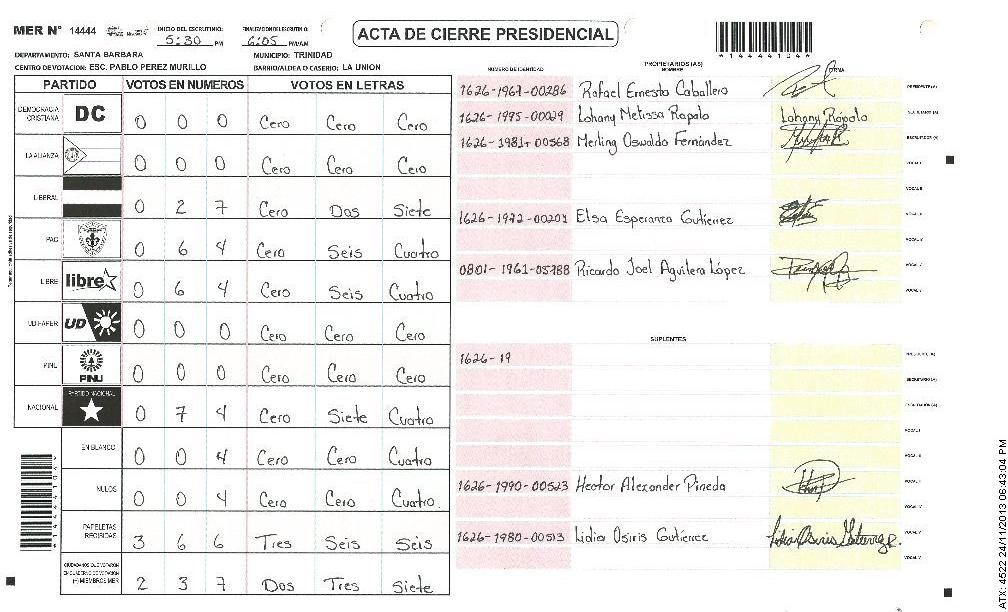 MER N° 14444 INICIO DEL ESCRUTINIO: 5:30 PM FINALIZACION DEL ESCRUTINIO: 6:05 PM/AM
ACTA DE CIERRE PRESIDENCIAL
*14444104*
DEPARTAMENTO: SANTA BARBARA MUNICIPIO: TRINIDAD
CENTRO DE VOTACION: ESC. PABLO PEREZ MURILLO BARRIO/ALDEA O CASERIO: LA UNION
PARTIDO VOTOS EN NUMEROS VOTOS EN LETRAS
DEMOCRACIA CRISTIANA DC 0 0 0 Cero Cero Cero
LA ALIANZA 0 0 0 Cero Cero Cero
LIBERAL 0 2 7 Cero Dos Siete
PAC 0 6 4 Cero Seis Cuatro
LIBRE libre 0 6 4 Cero Seis Cuatro
UD-FAPER UD 0 0 0 Cero Cero Cero
PINU PINU 0 0 0 Cero Cero Cero
NACIONAL PARTIDO NACIONAL 0 7 4 Cero Siete Cuatro
EN BLANCO 0 0 4 Cero Cero Cuatro
NULOS 0 0 4 Cero Cero Cuatro.
PAPELETAS RECIBIDAS 3 6 6 Tres Seis Seis
CIUDADANOS QUE VOTARON EN CUADERNO DE VOTACION (+) MIEMBROS MER 2 3 7 Dos Tres Siete
NUMERO DE IDENTIDAD PROPIETARIOS (AS) NOMBRE FIRMA
1626-1967-00286 Rafael Ernesto Caballero PRESIDENTE (A)
1626-1995-00029 Lohany Metissa Rapalo Lohany Rápalo SECRETARIO (A)
1626-1981-00568 Merling Oswaldo Fernández ESCRUTADOR (A)
VOCAL I
VOCAL II
1626-1972-00201 Elsa Esperanza Gutiérrez VOCAL III
VOCAL IV
0801-1961-05788 Ricardo Joel Aguilera López VOCAL V
SUPLENTES
1626-19 PRESIDENTE (A)
SECRETARIO (A)
ESCRUTADOR (A)
VOCAL I
VOCAL II
1626-1990-00523 Hector Alexander Pineda
VOCAL IV
1626-1980-00513 Lidia Osiris Gutiérrez Lidia Osiris Gutierrez R.
ATX: 4522 24/11/2013 06:43:04 PM